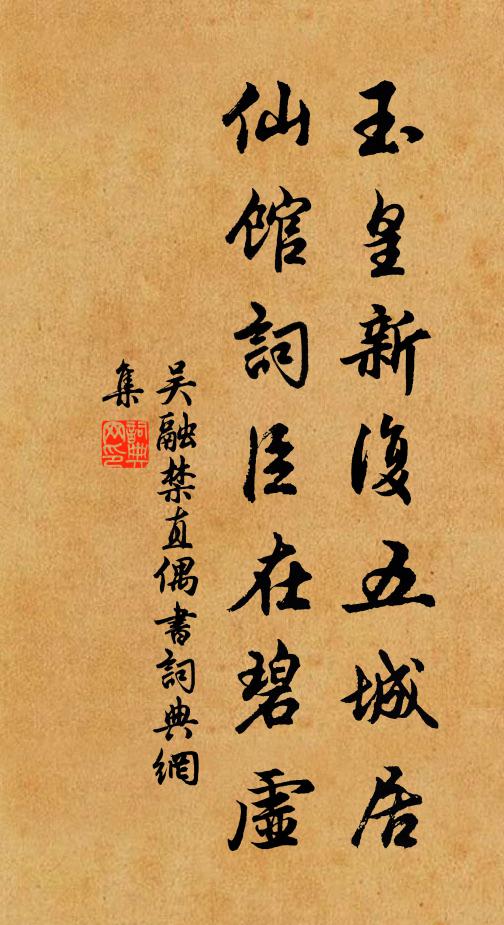 玉皇新復五城居
仙館詞臣在碧虛
吳融禁直偶書詞典網
集
詞典網印